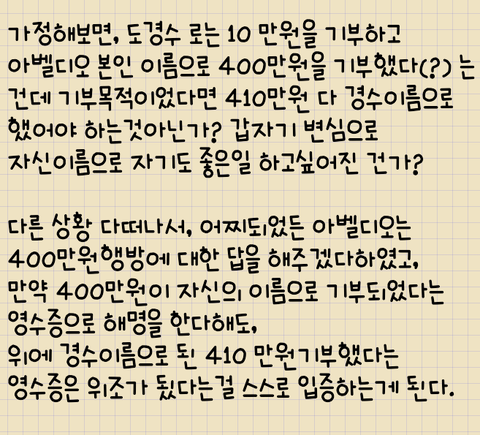 가정해보면, 도경수 로는 10 만원을 기부하고
아벨디오 본인 이름으로 400만원을 기부했다(?) 는
건데 기부목적이었다면 410만원 다 경수이름으로
했어야 하는것아닌가? 갑자기 변심으로
자신이름으로 자기도 좋은일 하고싶어진 건가?
다른 상황 다떠나서, 어찌되었든 아벨디오는
400만원행방에 대한 답을 해주겠다하였고,
만약 400만원이 자신의 이름으로 기부되었다는
영수증으로 해명을 한다해도,
위에 경수이름으로 된 410 만원기부했다는
영수증은 위조가 됬다는걸 스스로 입증하는게 된다.